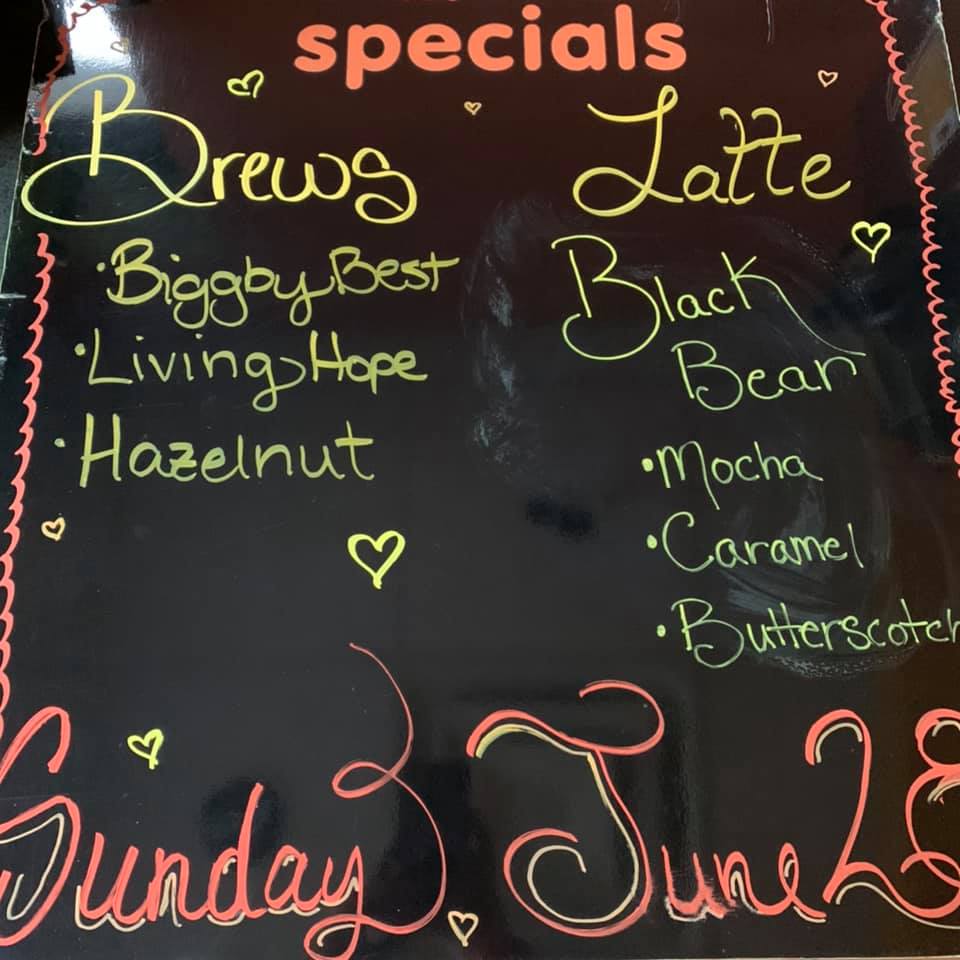 specials
Brews
·Biggby Best
·Living Hope
·Hazelnut
Latte
Black
Bean
·Mocha
·Caramel
·Butterscotch
Sunday June 28